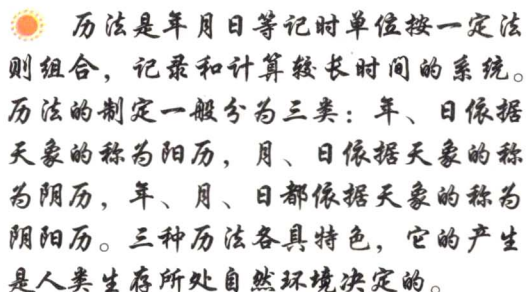 历法是年月日等记时单位按一定法
则组合，记录和计算较长时间的系统。
历法的制定一般分为三类：年、日依据
天象的称为阳历，月、日依据天象的称
为阴历，年、月、日都依据天象的称为
阴阳历。三种历法各具特色，它的产生
是人类生存所处自然环境决定的。